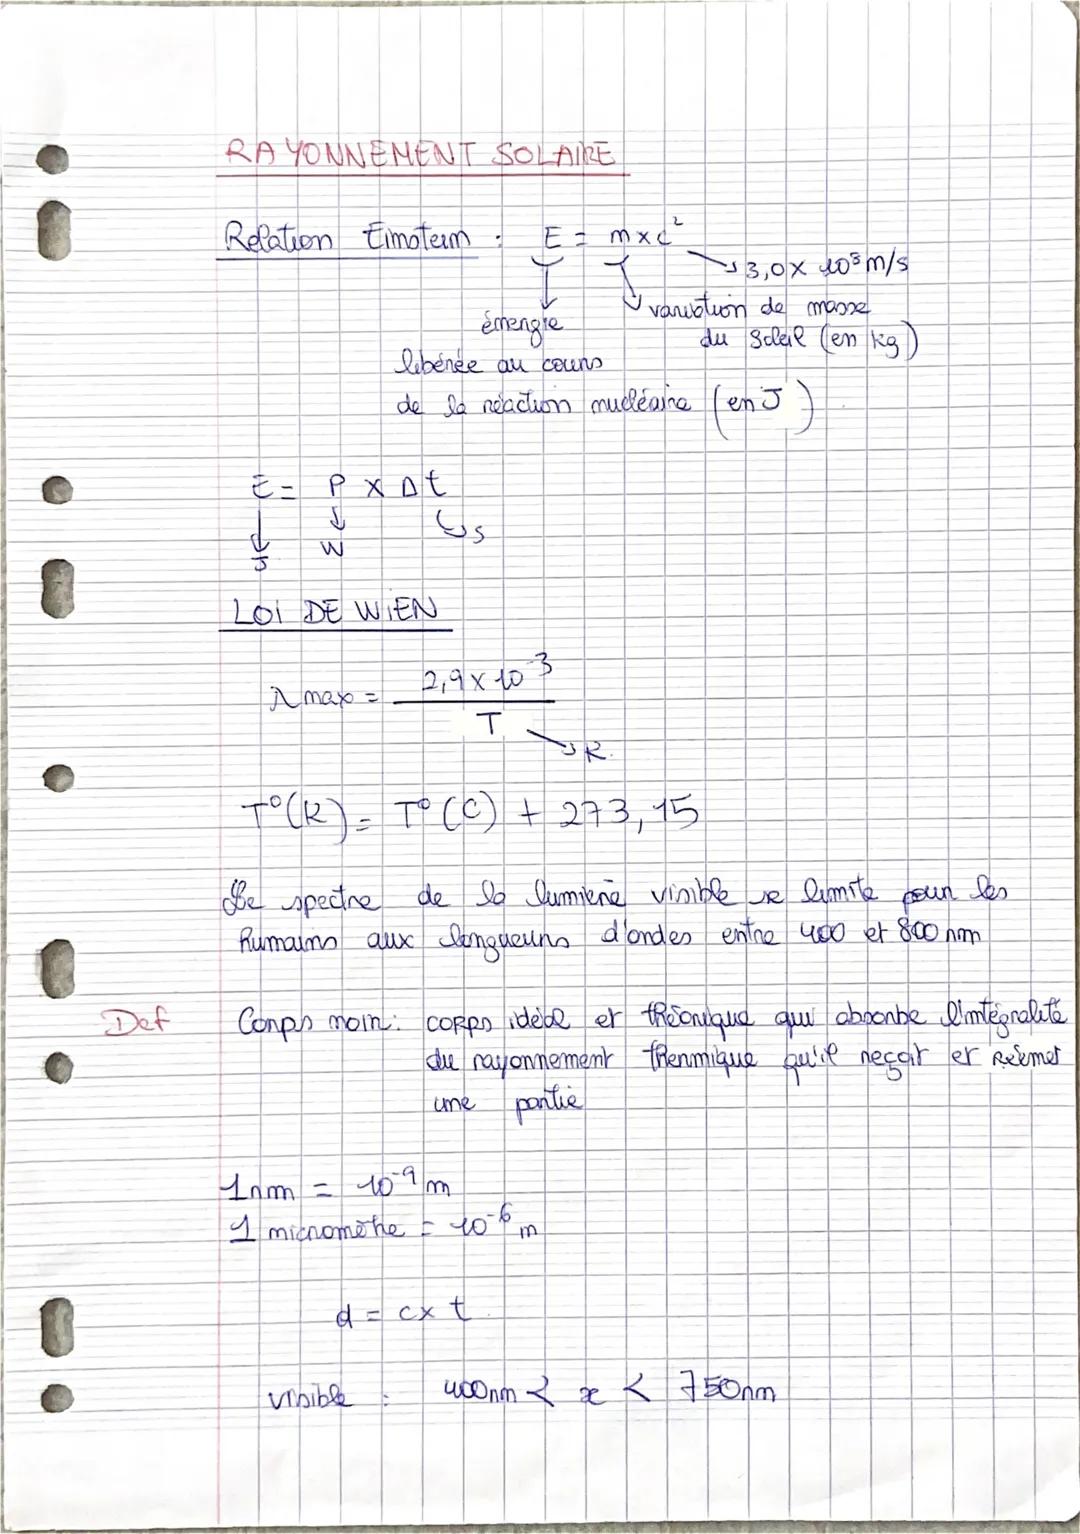 RAYONNEMENT SOLAIRE
Relation Einstein : E = m x c²
3,0 x 10⁸ m/s
variation de masse
énergie
du Soleil (en kg)
libérée au cours
de la réaction nucléaire (en J)
E = P x Δt
J W s
LOI DE WIEN
λmax = 2,9 x 10⁻³ / T
K
T°(K) = T°(C) + 273,15
Le spectre de la lumière visible se limite pour les
humains aux longueurs d'ondes entre 400 et 800 nm
Def Corps noir : corps idéal et théorique qui absorbe l'intégralité
du rayonnement thermique qu'il reçoit et réémet
une partie
1nm = 10⁻⁹ m
1 micromètre = 10⁻⁶ m
d = c x t
visible : 400nm < x < 750nm